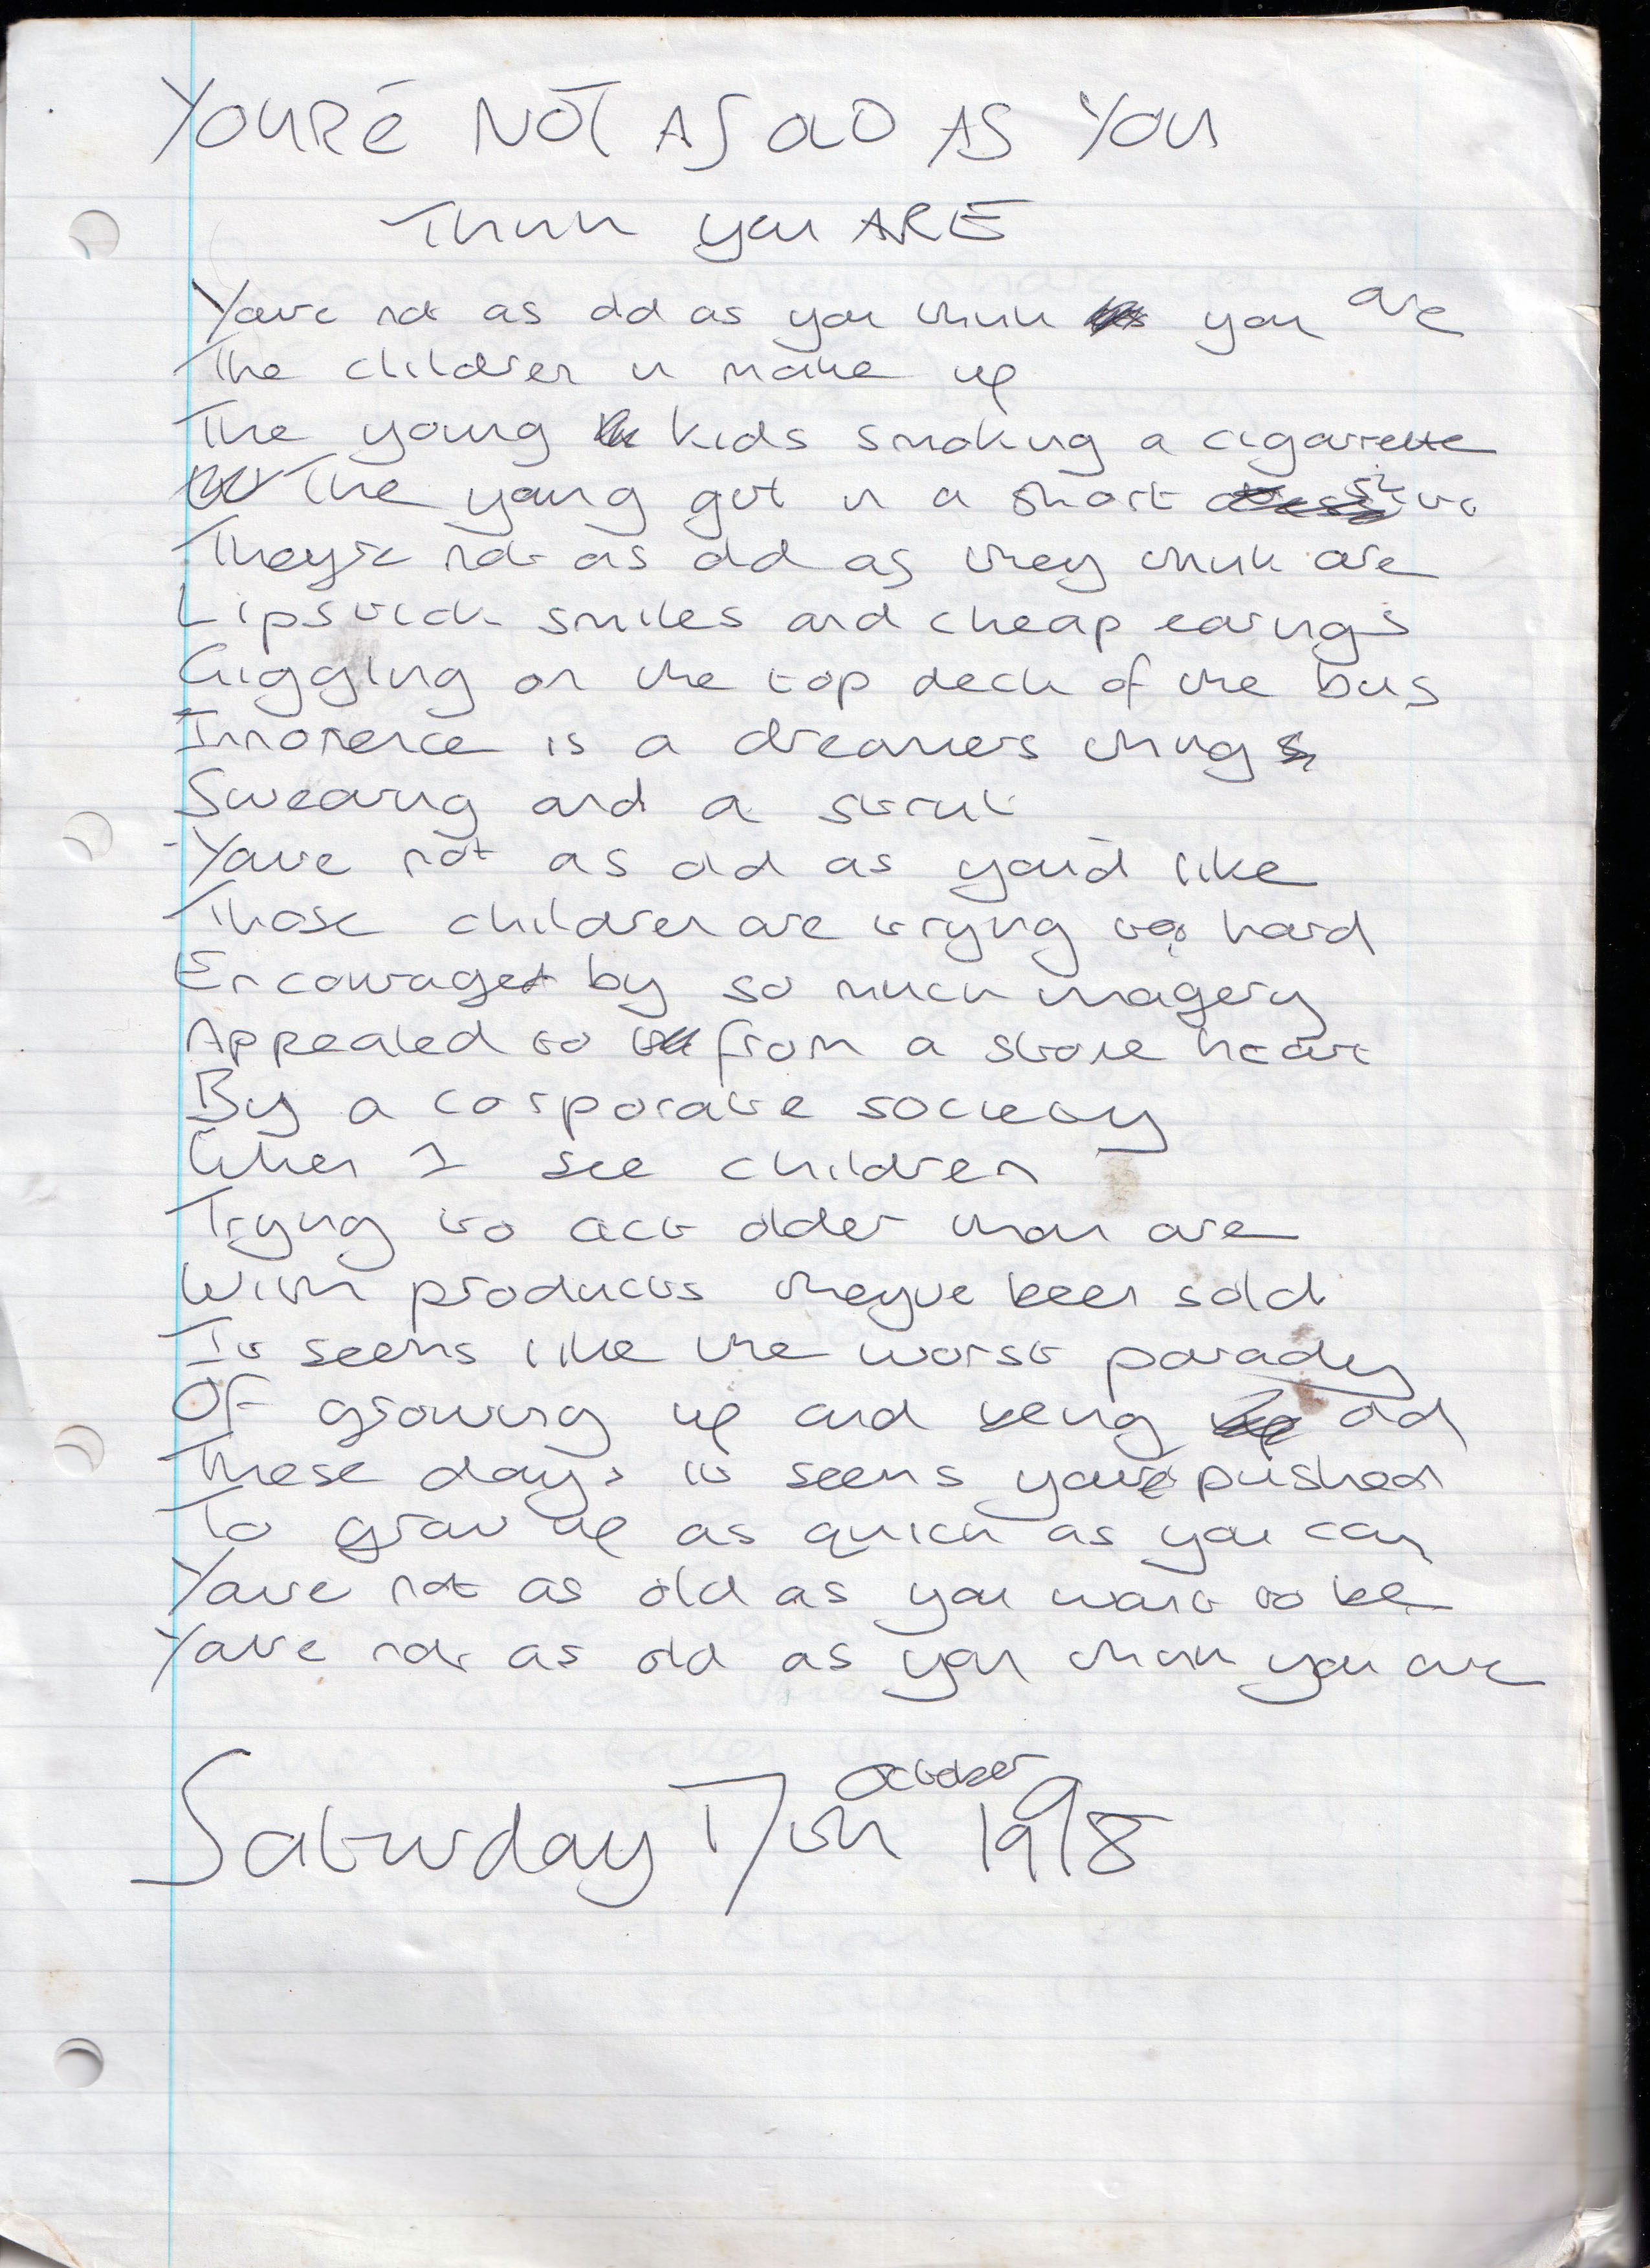 YOURE NOT AS OLD AS YOU
THINK YOU ARE
Youre not as old as you think you are
The children in make up
The young kids smoking a cigarette
The young girl in a short skirt
Theyre not as old as they think are
Lipstick smiles and cheap earings
Giggling on the top deck of the bus
Innonence is a dreamers thing
Swearing and a strut
Youre not as old as you'd like
Those children are trying too hard
Encouraged by so much imagery
Appealed to from a stone heart
By a corporate society
When I see children
Trying to act older than are
With products theyve been sold
It seems like the worst parady
Of growing up and being old
These days it seems youre pushed
To grow up as quick as you can
Youre not as old as you want to be
Youre not as old as you think you are
Saturday 17th October 1998